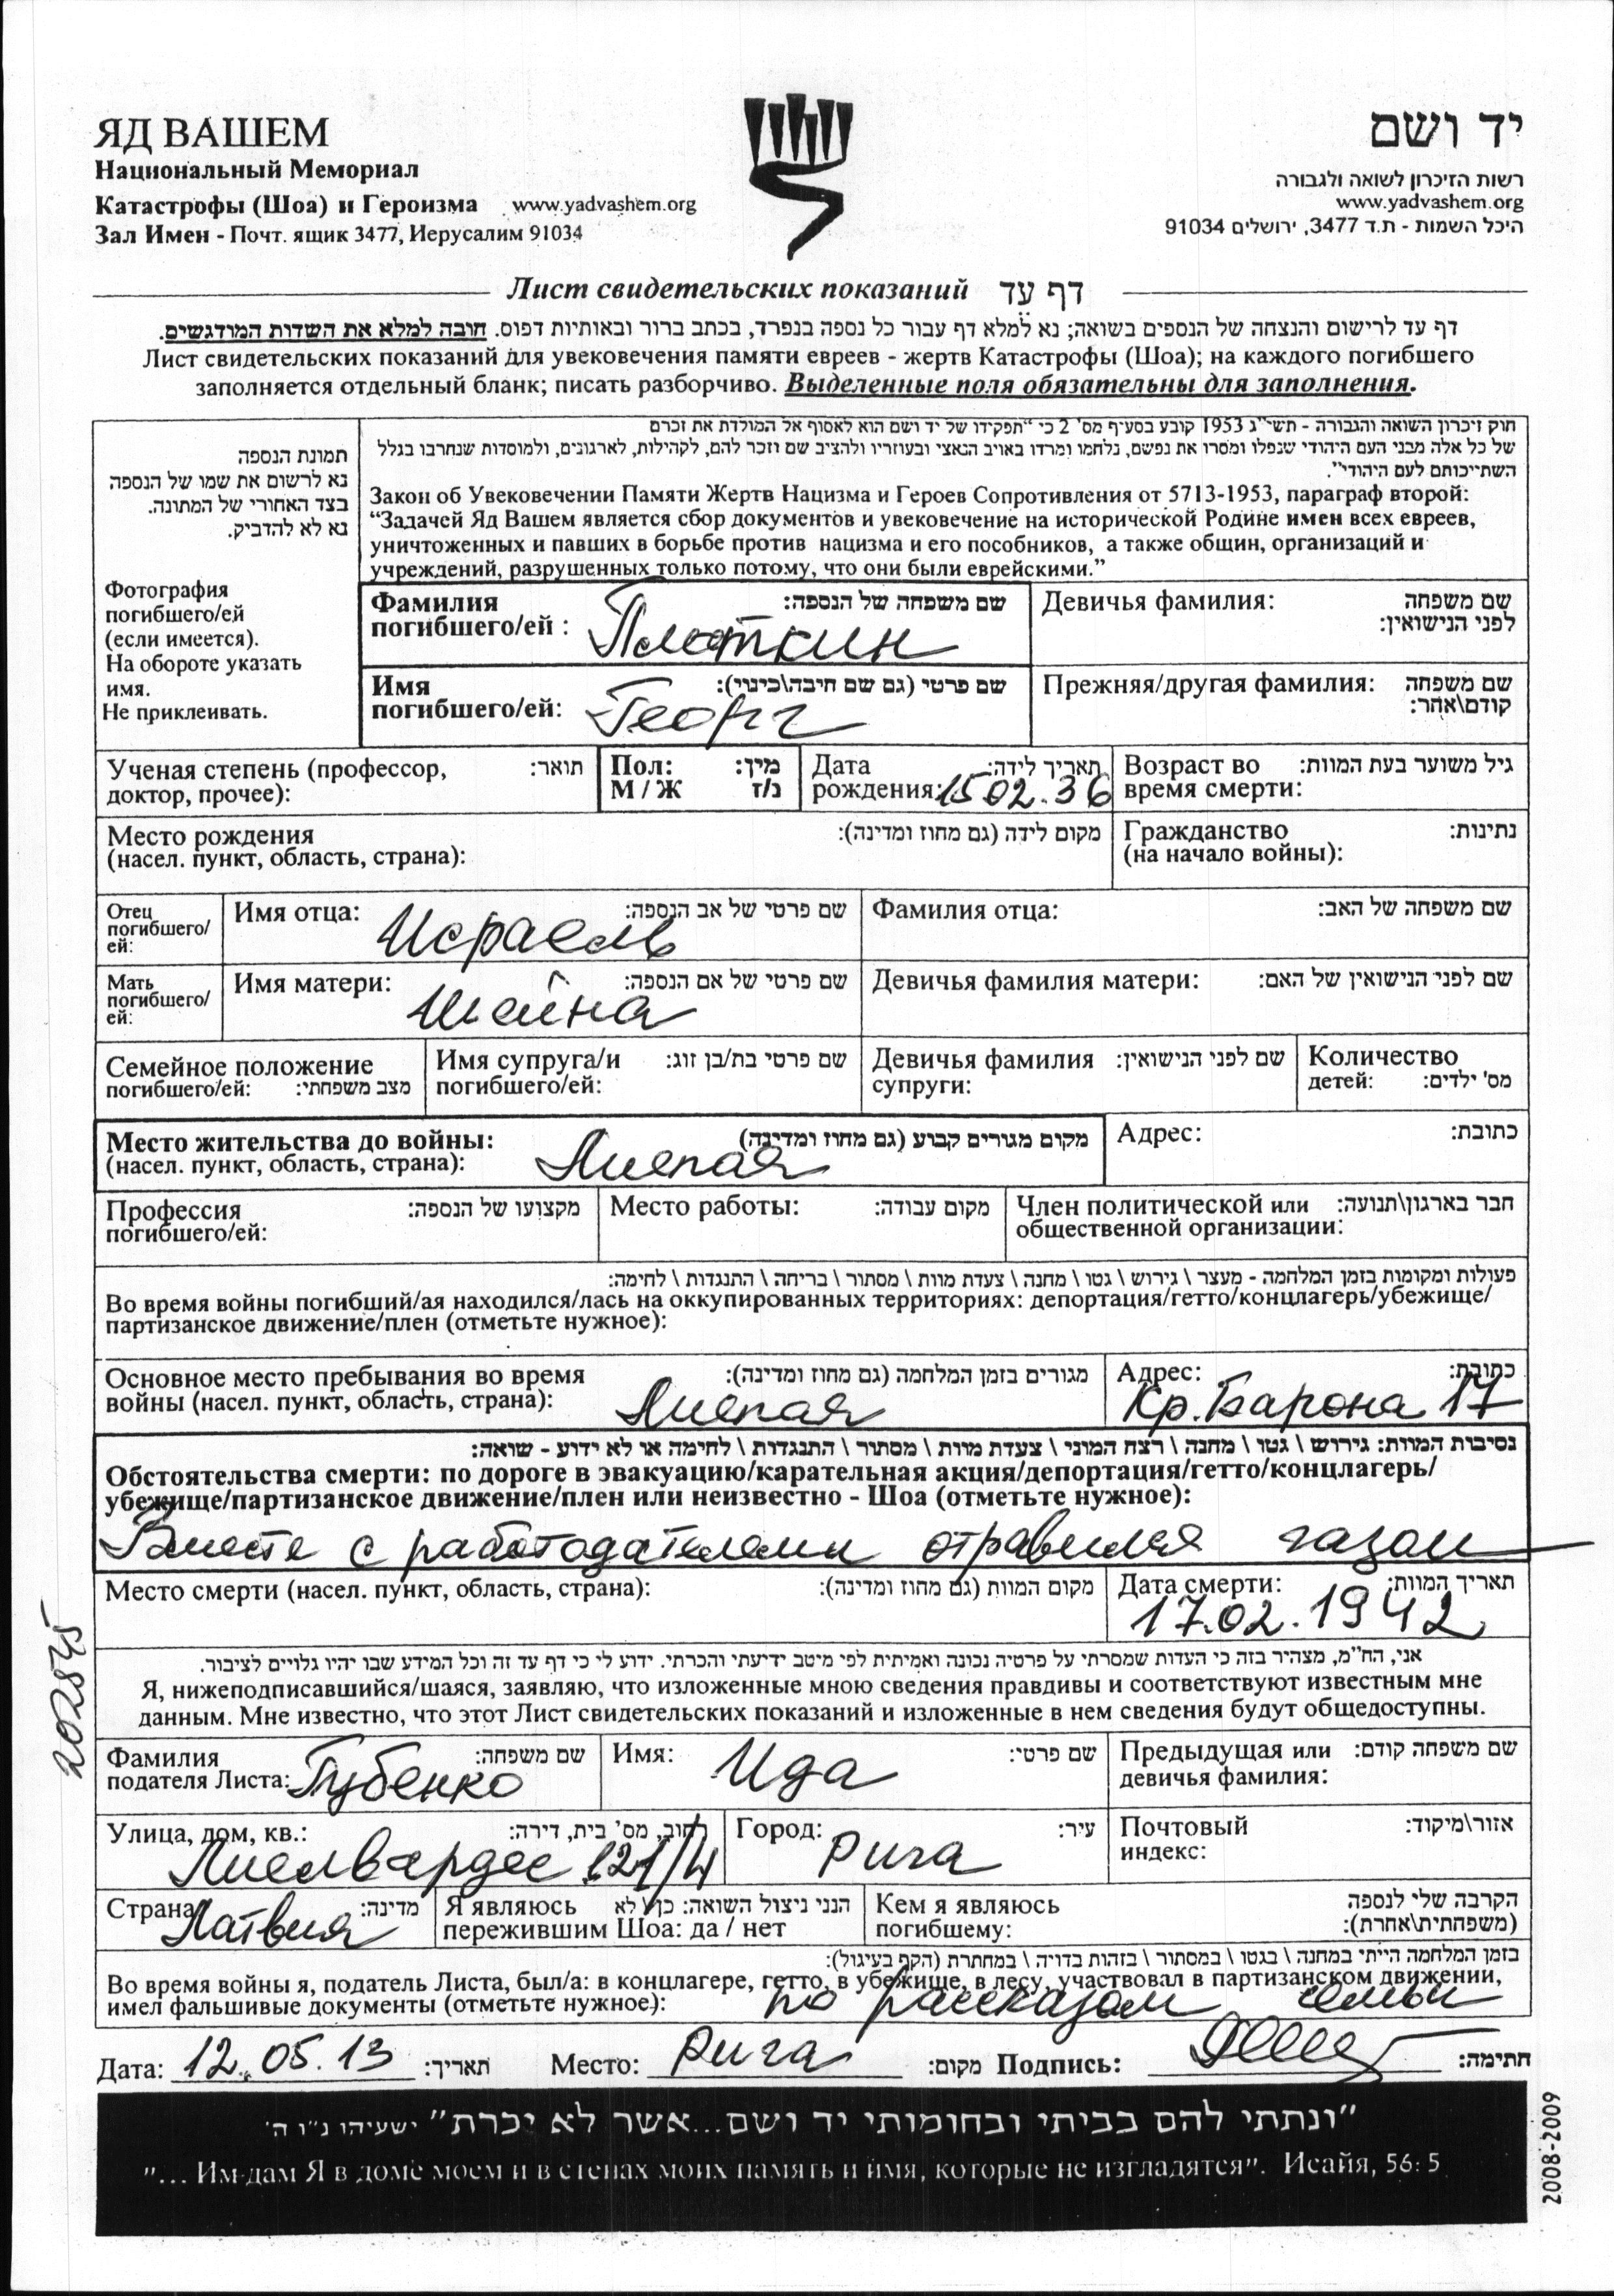 ЯД ВАШЕМ
Национальный Мемориал
Катастрофы (Шоа) и Героизма www.yadvashem.org
Зал Имен - Почт. ящик 3477, Иерусалим 91034
יד ושם
רשות הזיכרון לשואה ולגבורה
www.yadvashem.org
היכל השמות - ת.ד 3477, ירושלים 91034
Лист свидетельских показаний דף עד
דף עד לרישום והנצחה של הנספים בשואה; נא למלא דף עבור כל נספה בנפרד, בכתב ברור ובאותיות דפוס. חובה למלא את השדות המודגשים.
Лист свидетельских показаний для увековечения памяти евреев - жертв Катастрофы (Шоа); на каждого погибшего
заполняется отдельный бланк; писать разборчиво. Выделенные поля обязательны для заполнения.
תמונת הנספה
נא לרשום את שמו של הנספה
בצד האחורי של המתונה.
נא לא להדביק.
Фотография
погибшего/ей
(если имеется).
На обороте указать
имя.
Не приклеивать.
חוק זיכרון השואה והגבורה - תשי"ג 1953 קובע בסעיף מס' 2 כי "תפקידו של יד ושם הוא לאסוף אל המולדת את זכרם
של כל אלה מבני העם היהודי שנפלו ומסרו את נפשם, נלחמו ומרדו באויב הנאצי ובעוזריו ולהציב שם וזכר להם, לקהילות, לארגונים, ולמוסדות שנחרבו בגלל
השתייכותם לעם היהודי".
Закон об Увековечении Памяти Жертв Нацизма и Героев Сопротивления от 5713-1953, параграф второй:
“Задачей Яд Вашем является сбор документов и увековечение на исторической Родине имен всех евреев,
уничтоженных и павших в борьбе против нацизма и его пособников, а также общин, организаций и
учреждений, разрушенных только потому, что они были еврейскими.”
Фамилия שם משפחה של הנספה:
погибшего/ей : Плоткин
Девичья фамилия: שם משפחה
לפני הנישואין:
Имя שם פרטי (גם שם חיבה\כינוי):
погибшего/ей: Георг
Прежняя/другая фамилия: שם משפחה
קודם\אחר:
Ученая степень (профессор, תואר:
доктор, прочее):
Пол: מין:
М / Ж ז/נ
Дата תאריך לידה:
рождения: 15 02.36
Возраст во גיל משוער בעת המוות:
время смерти:
Место рождения מקום לידה (גם מחוז ומדינה):
(насел. пункт, область, страна):
Гражданство נתינות:
(на начало войны):
Отец
погибшего/
ей:
Имя отца: שם פרטי של אב הנספה:
Исраель
Фамилия отца: שם משפחה של האב:
Мать
погибшего/
ей:
Имя матери: שם פרטי של אם הנספה:
Шейна
Девичья фамилия матери: שם לפני הנישואין של האם:
Семейное положение
погибшего/ей: מצב משפחתי:
Имя супруга/и שם פרטי בת/בן זוג:
погибшего/ей:
Девичья фамилия שם לפני הנישואין:
супруги:
Количество
детей: מס' ילדים:
Место жительства до войны: מקום מגורים קבוע (גם מחוז ומדינה)
(насел. пункт, область, страна): Лиепая
Адрес: כתובת:
Профессия מקצועו של הנספה:
погибшего/ей:
Место работы: מקום עבודה:
Член политической или חבר בארגון\תנועה:
общественной организации:
פעולות ומקומות בזמן המלחמה - מעצר \ גירוש \ גטו \ מחנה \ צעדת מוות \ מסתור \ בריחה \ התנגדות \ לחימה:
Во время войны погибший/ая находился/лась на оккупированных территориях: депортация/гетто/концлагерь/убежище/
партизанское движение/плен (отметьте нужное):
Основное место пребывания во время מגורים בזמן המלחמה (גם מחוז ומדינה):
войны (насел. пункт, область, страна): Лиепая
Адрес: כתובת:
Кр. Барона 17
נסיבות המוות: גירוש \ גטו \ מחנה \ רצח המוני \ צעדת מוות \ מסתור \ התנגדות \ לחימה או לא ידוע - שואה:
Обстоятельства смерти: по дороге в эвакуацию/карательная акция/депортация/гетто/концлагерь/
убежище/партизанское движение/плен или неизвестно - Шоа (отметьте нужное):
Вместе с работодателями отравился газом
Место смерти (насел. пункт, область, страна): מקום המוות (גם מחוז ומדינה):
Дата смерти: תאריך המוות:
17.02.1942
202845
אני, הח"מ, מצהיר בזה כי העדות שמסרתי על פרטיה נכונה ואמיתית לפי מיטב ידיעתי והכרתי. ידוע לי כי דף עד זה וכל המידע שבו יהיו גלויים לציבור.
Я, нижеподписавшийся/шаяся, заявляю, что изложенные мною сведения правдивы и соответствуют известным мне
данным. Мне известно, что этот Лист свидетельских показаний и изложенные в нем сведения будут общедоступны.
Фамилия שם משפחה:
подателя Листа: Губенко
Имя: Ида שם פרטי:
Предыдущая или שם משפחה קודם:
девичья фамилия:
Улица, дом, кв.: רחוב, מס' בית, דירה:
Лиелвардес 121/4
Город: עיר:
Рига
Почтовый אזור\מיקוד:
индекс:
Страна מדינה:
Латвия
Я являюсь הנני ניצול השואה: כן\ לא
пережившим Шоа: да / нет
Кем я являюсь הקרבה שלי לנספה
погибшему: (משפחתית\אחרת):
בזמן המלחמה הייתי במחנה \ בגטו \ במסתור \ בזהות בדויה \ במחתרת (הקף בעיגול):
Во время войны я, податель Листа, был/а: в концлагере, гетто, в убежище, в лесу, участвовал в партизанском движении,
имел фальшивые документы (отметьте нужное): по рассказам семьи
Дата: 12.05.13 תאריך: Место: Рига מקום: Подпись: חתימה:
"ונתתי להם בביתי ובחומותי יד ושם...אשר לא יכרת" ישעיהו נ"ו ה'
"... Им дам Я в доме моем и в стенах моих память и имя, которые не изгладятся". Исайя, 56: 5
2008-2009